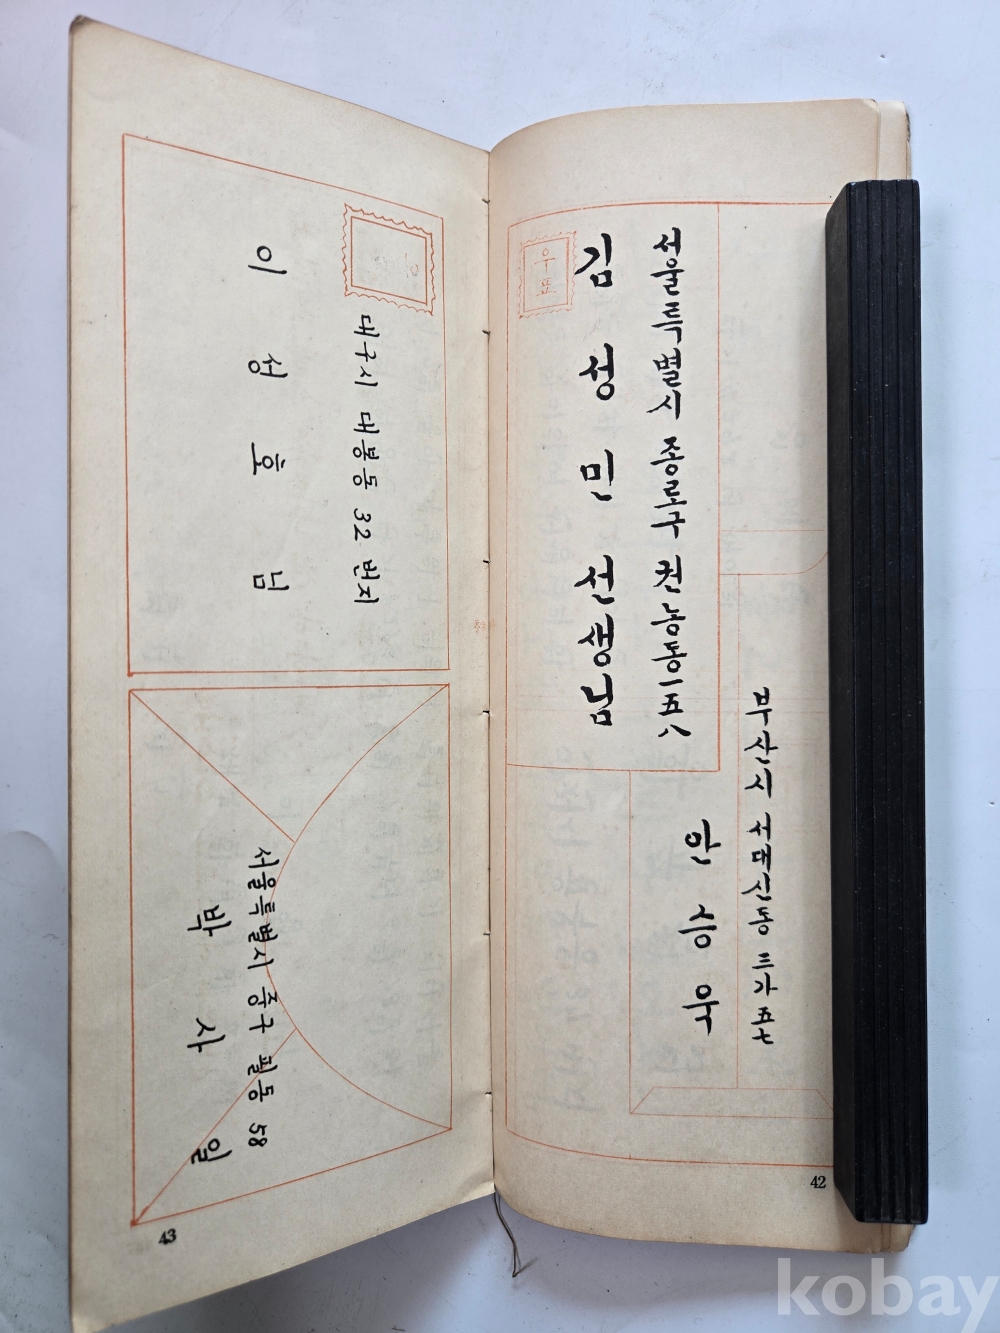 우표
서울특별시 종로구 권농동 一五八
김성민 선생님
부산시 서대신동 三가 五七
안승욱
42
대구시 대봉동 32 번지
이성호님
서울특별시 중구 필동 58
박사일
43
kobay